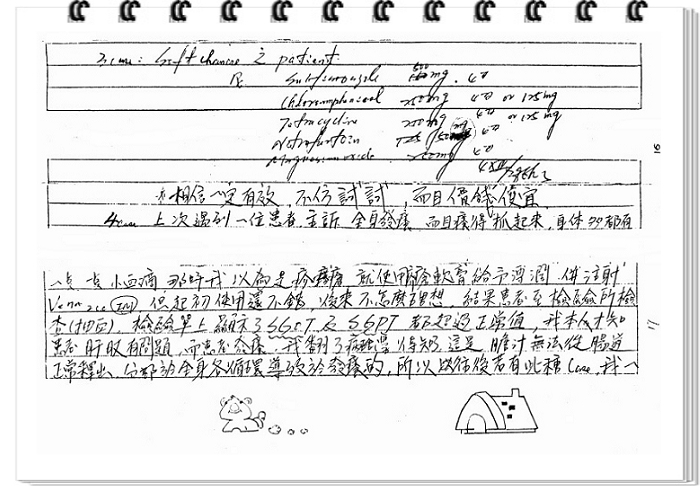 3 case: Soft chancre 之 patient.
Rx Sulfisoxazole 500mg . 4#
Chloramphenicol 250mg 4# or 125mg
Tetracycline 250mg 4# or 125mg
Nitrofurantoin 4#
Magnesium oxide 250mg
※相信一定有效, 不仿試試, 而且價錢便宜
16
4 case 上次遇到一位患者, 主訴全身發癢, 而且癢得抓起來, 身体到處都有
一点一点小血滴, 那時我以為是疹癢膏, 就使用軟膏給予薄潤, 併注射
Vena 2cc (IM) 但起初使用還不錯, 後來不怎麼理想, 結果患者至檢驗所檢
查(抽血), 檢驗單上顯示了SGOT及SGPT都超過正常值, 我本人才知
患者肝臟有問題, 而患者發癢, 我翻了病理學得知這是膽汁無法從腸道
正常釋出, 全部於全身各循環導致於發癢的, 所以以後若有此種Case, 我一
17